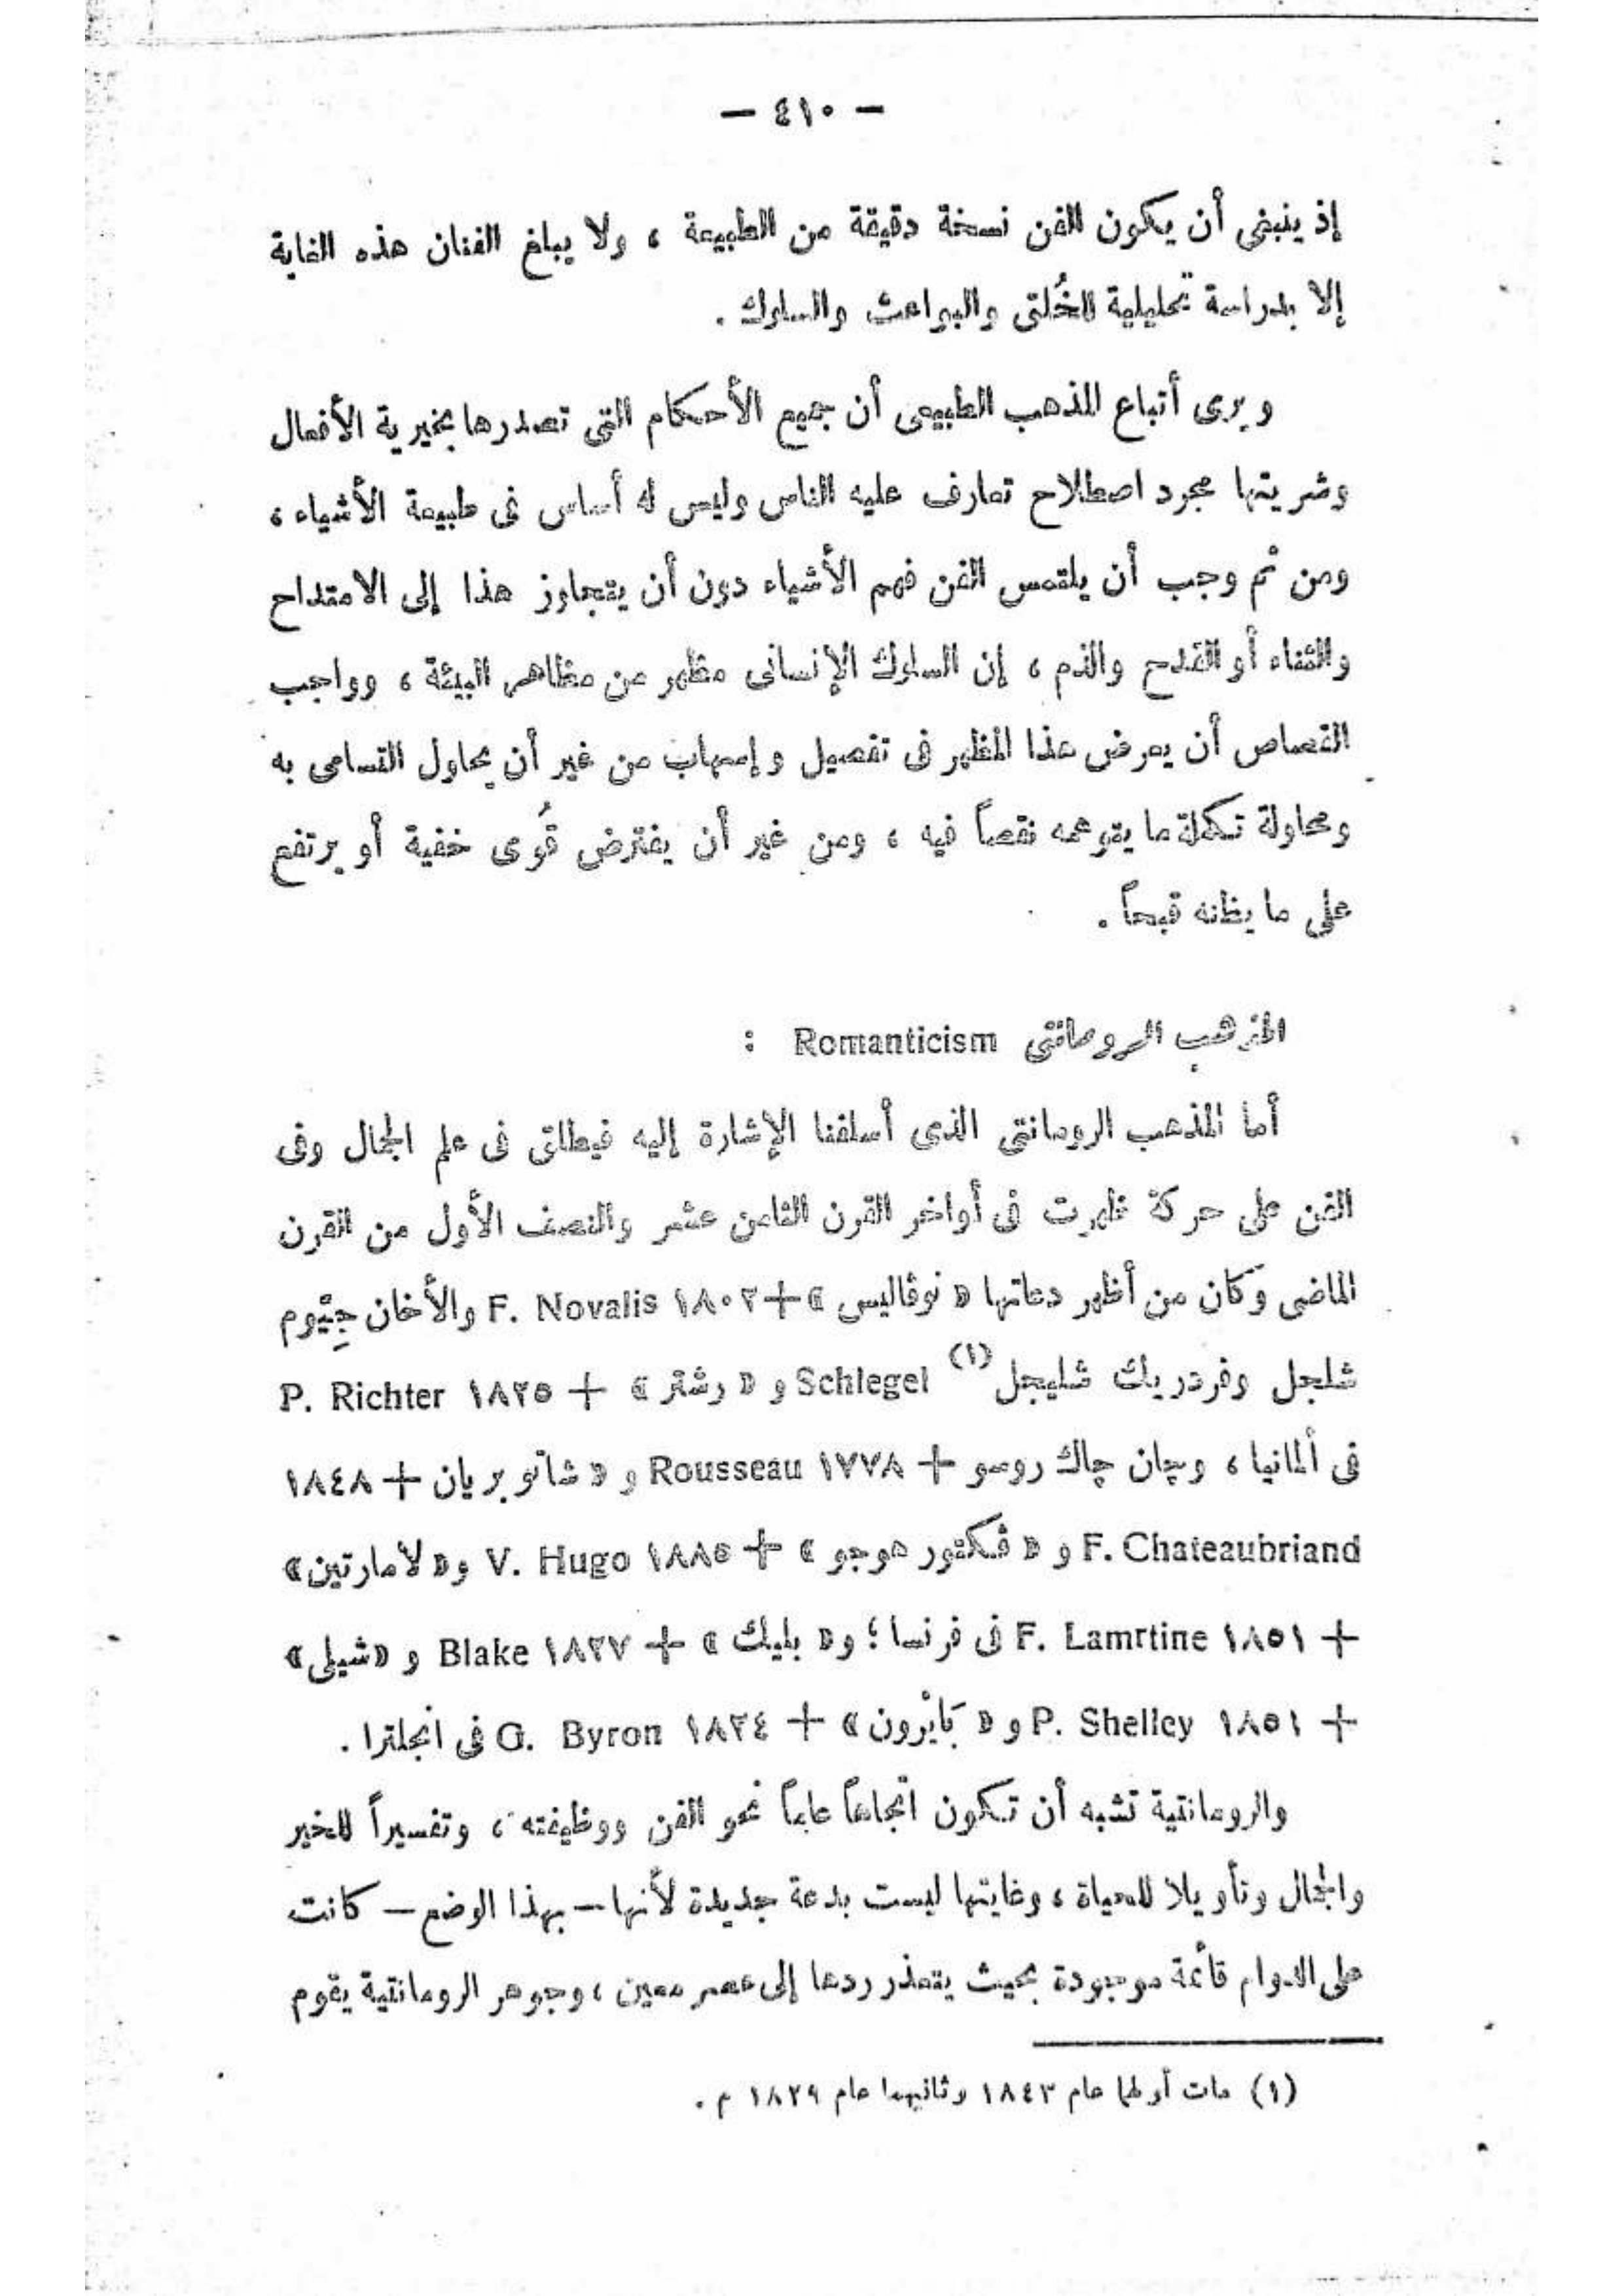 — ٤١٠ —
إذ ينبغى أن يكون الفن نسخة دقيقة من الطبيعة ، ولا يبلغ الفنان هذه الغاية
إلا بدراسة تحليلية للخُلق والبواعث والسلوك .
ويرى أتباع المذهب الطبيعى أن جميع الأحكام التى تصدرها بخيرية الأفعال
وشريتها مجرد اصطلاح تعارف عليه الناس وليس له أساس فى طبيعة الأشياء ،
ومن ثم وجب أن يلتمس الفن فهم الأشياء دون أن يتجاوز هذا إلى الامتداح
والثناء أو القدح والذم ، إن السلوك الإنسانى مظهر من مظاهر البيئة ، وواجب
القصاص أن يعرض هذا المظهر فى تفصيل وإسهاب من غير أن يحاول التسامى به
ومحاولة تكملة ما يتوهمه نقصاً فيه ، ومن غير أن يفترض قُوى خفية أو يرتفع
على ما يظنه قبحاً .
المذهب الرومانتى Romanticism :
أما المذهب الرومانتى الذى أسلفنا الإشارة إليه فيطلق فى علم الجمال وفى
الفن على حركة ظهرت فى أواخر القرن الثامن عشر والنصف الأول من القرن
الماضى وكان من أظهر دعاتها « نوڤاليس » + ١٨٠٢ F. Novalis والأخان جِيّوم
شلجل وفردريك شليجل (١) Schlegel و « رشتر » + ١٨٢٥ P. Richter
فى ألمانيا ، وچان چاك روسو + ١٧٧٨ Rousseau و « شاتوبريان + ١٨٤٨
F. Chateaubriand و « ڤكتور هوجو » + ١٨٨٥ V. Hugo و« لامارتين »
+ ١٨٥١ F. Lamrtine فى فرنسا ؛ و« بليك » + ١٨٢٧ Blake و «شيلى»
+ ١٨٥١ P. Shelley و « بَايْرون » + ١٨٢٤ G. Byron فى انجلترا .
والرومانتية تشبه أن تكون اتجاهاً عاماً نحو الفن ووظيفته ، وتفسيراً للخير
والجمال وتأويلا للحياة ، وغايتها ليست بدعة جديدة لأنها — بهذا الوضع — كانت
على الدوام قائمة موجودة بحيث يتعذر ردها إلى عصر معين ، وجوهر الرومانتية يقوم
(١) مات أولهما عام ١٨٤٣ وثانيهما عام ١٨٢٩ م .